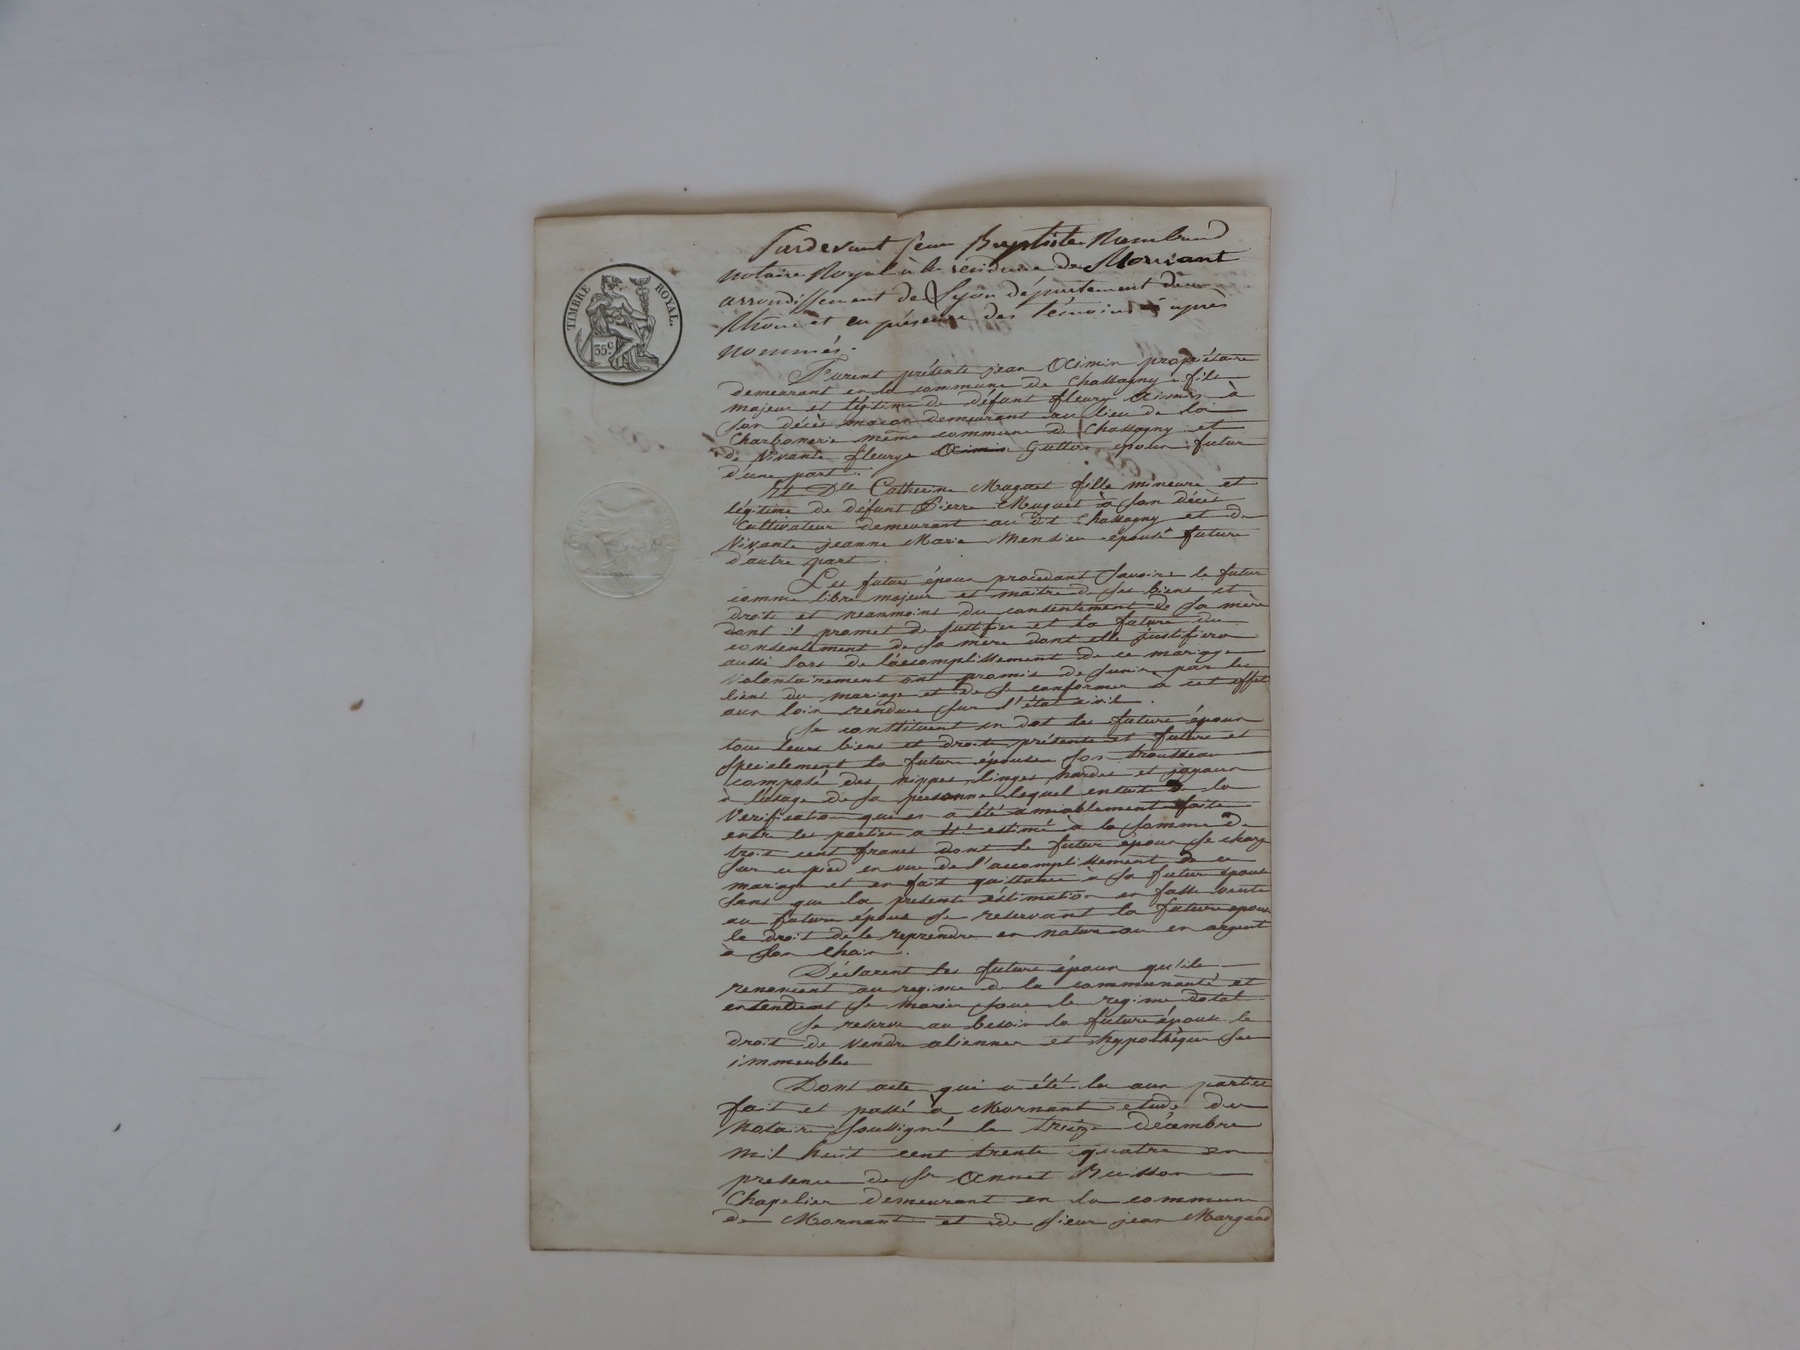 TIMBRE ROYAL.
35c
Pardevant Jean Baptiste Rambaud
notaire Royal à la residence de Mornant
arrondissement de Lyon département du
Rhône et en présence des témoins ci après
nommés.
Furent présents jean Ocimin propriétaire
demeurant en la commune de Chassagny fils
majeur et légitime de défunt fleury Ocimin à
son décès maçon demeurant au lieu de la
Charbonerie même commune de Chassagny et
de Vivante fleurye Ocimin Gutton époux futur
d'une part.
Et Dlle Catherine Muguet fille mineure et
légitime de défunt Pierre Muguet à son décès
Cultivateur demeurant au dt Chassagny et de
Vivante jeanne Marie épouse future
d'autre part.
Les futurs époux procedant savoire le futur
comme libre majeur et maitre de ses biens et
droits et neanmoins du consentement de sa mère
dont il promet de justifier et la future du
consentement de sa mère dont elle justifiera
aussi lors de l'accomplissement de ce mariage
Volontairement ont promis de s'unir par les
liens du mariage et de se conformer à cet effet
aux loix rendues sur l'état civil.
Se constituent en dot les futurs époux
tous leurs biens et droits présents et futurs et
specialement la future épouse son trousseau
composé des nippes linges hardes et joyaux
à l'usage de sa personne lequel ensuite de la
Verification qui en a été amiablement faite
entre les parties a été estimé à la somme de
trois cent francs dont le futur époux se charge
sur ce pied en vue de l'accomplissement de ce
mariage et en fait quittance à sa future épouse
sans que la presente éstimation en fasse vente
au futur époux se reservant la future epouse
le droit de le reprendre en nature ou en argent
à son choix.
Déclarent les futurs époux qu'ils
renoncent au regime de la communauté et
entendent se marier sous le regime dotal
Se reserve au besoin la future épouse le
droit de vendre alienner et hypothèquer ses
immeubles
Dont acte qui a été lu aux parties
fait et passé à Mornant etude du
Notaire soussigné le treize décembre
mil huit cent trente quatre en
presence de Sr Annet Buisson
Chapelier demeurant en la commune
de Mornant et de sieur jean Margand